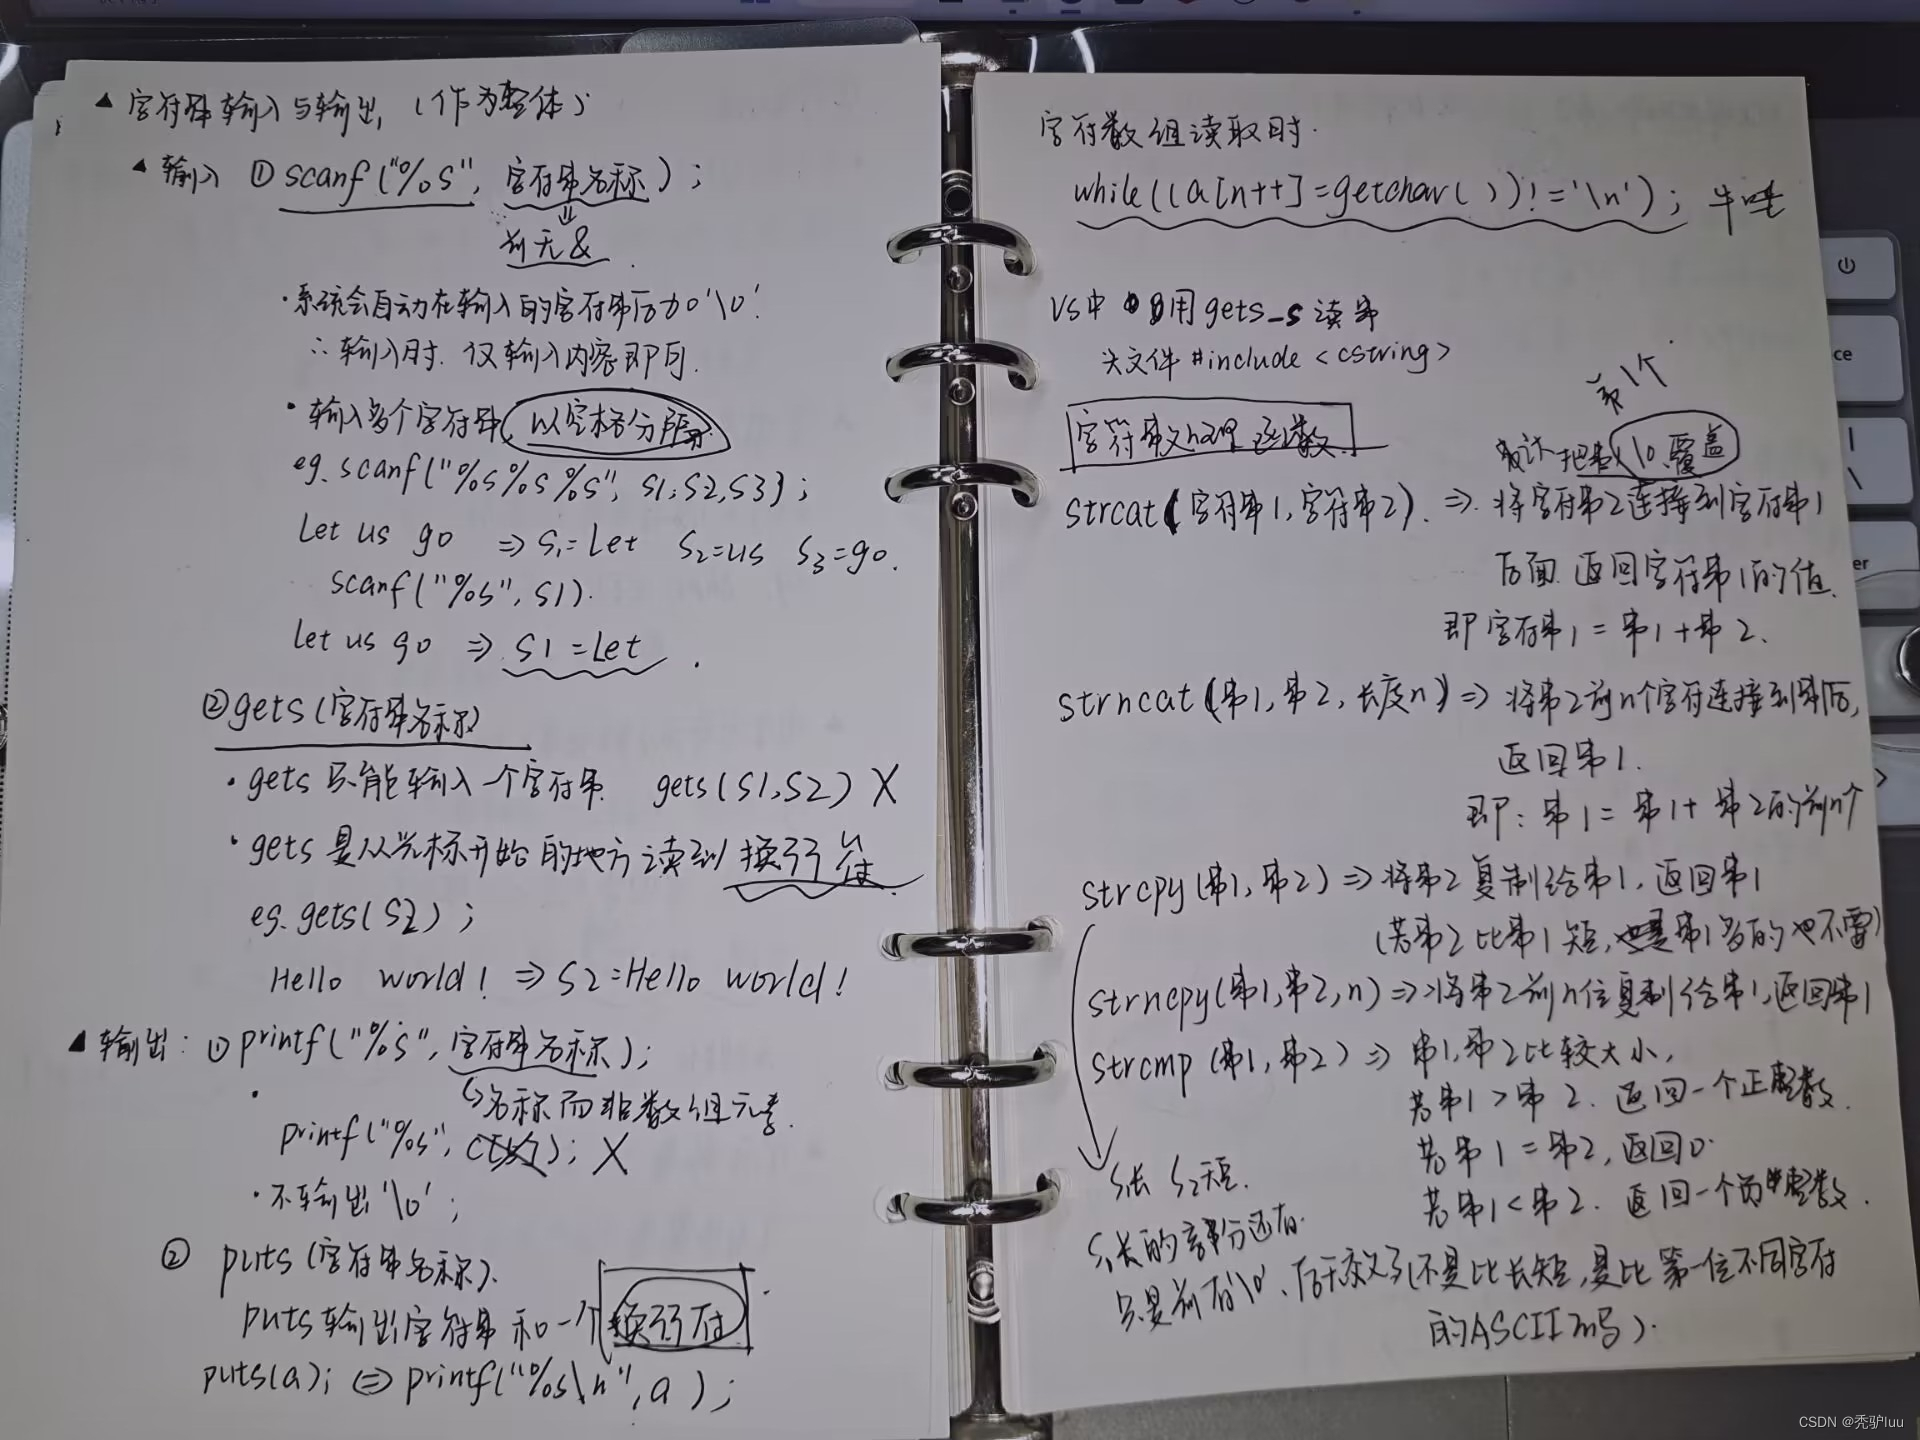 ▲ 字符串输入与输出 (作为整体)
▲ 输入 ① scanf("%s", 字符串名称);
⇓
前无&
·系统会自动在输入的字符串后加'\0'.
∴ 输入时. 仅输入内容即可.
· 输入多个字符串, 以空格分隔.
eg. scanf("%s%s%s", s1,s2,s3);
Let us go ⇒ S1=Let S2=us S3=go.
scanf("%s", s1).
Let us go ⇒ S1=Let.
② gets(字符串名称)
· gets 只能输入一个字符串. gets(S1,S2) X
· gets 是从光标开始的地方读到换行符
eg. gets(S2);
Hello world! ⇒ S2=Hello world!
▲ 输出: ① printf("%s", 字符串名称);
↳名称而非数组元素.
printf("%s", ); X
· 不输出'\0';
② puts(字符串名称).
puts 输出字符串和一个换行符
puts(a); ⇔ printf("%s\n", a);
字符数组读取时.
while((a[n++]=getchar())!='\n'); 牛哇
VS中 用gets_s 读串
头文件 #include <cstring>
字符串处理函数
第1个
把 \0 覆盖
strcat(字符串1,字符串2). ⇒ 将字符串2连接到字符串1
后面. 返回字符串1的值.
即字符串1=串1+串2.
strncat(串1,串2,长度n) ⇒ 将串2前n个字符连接到串1后,
返回串1.
即: 串1=串1+串2的前n个
strcpy(串1,串2) ⇒ 将串2复制给串1,返回串1
(若串2比串1短, 串1多的也不要)
strncpy(串1,串2,n) ⇒ 将串2前n位复制给串1,返回串1
strcmp(串1,串2) ⇒ 串1,串2比较大小,
若串1>串2. 返回一个正整数.
若串1=串2,返回0.
若串1<串2. 返回一个负整数.
S1长 S2短.
S1长的部分还有.
只是前有'\0'、后无效了
(不是比长短,是比第一位不同字符
的ASCII码).
CSDN @秃驴luu